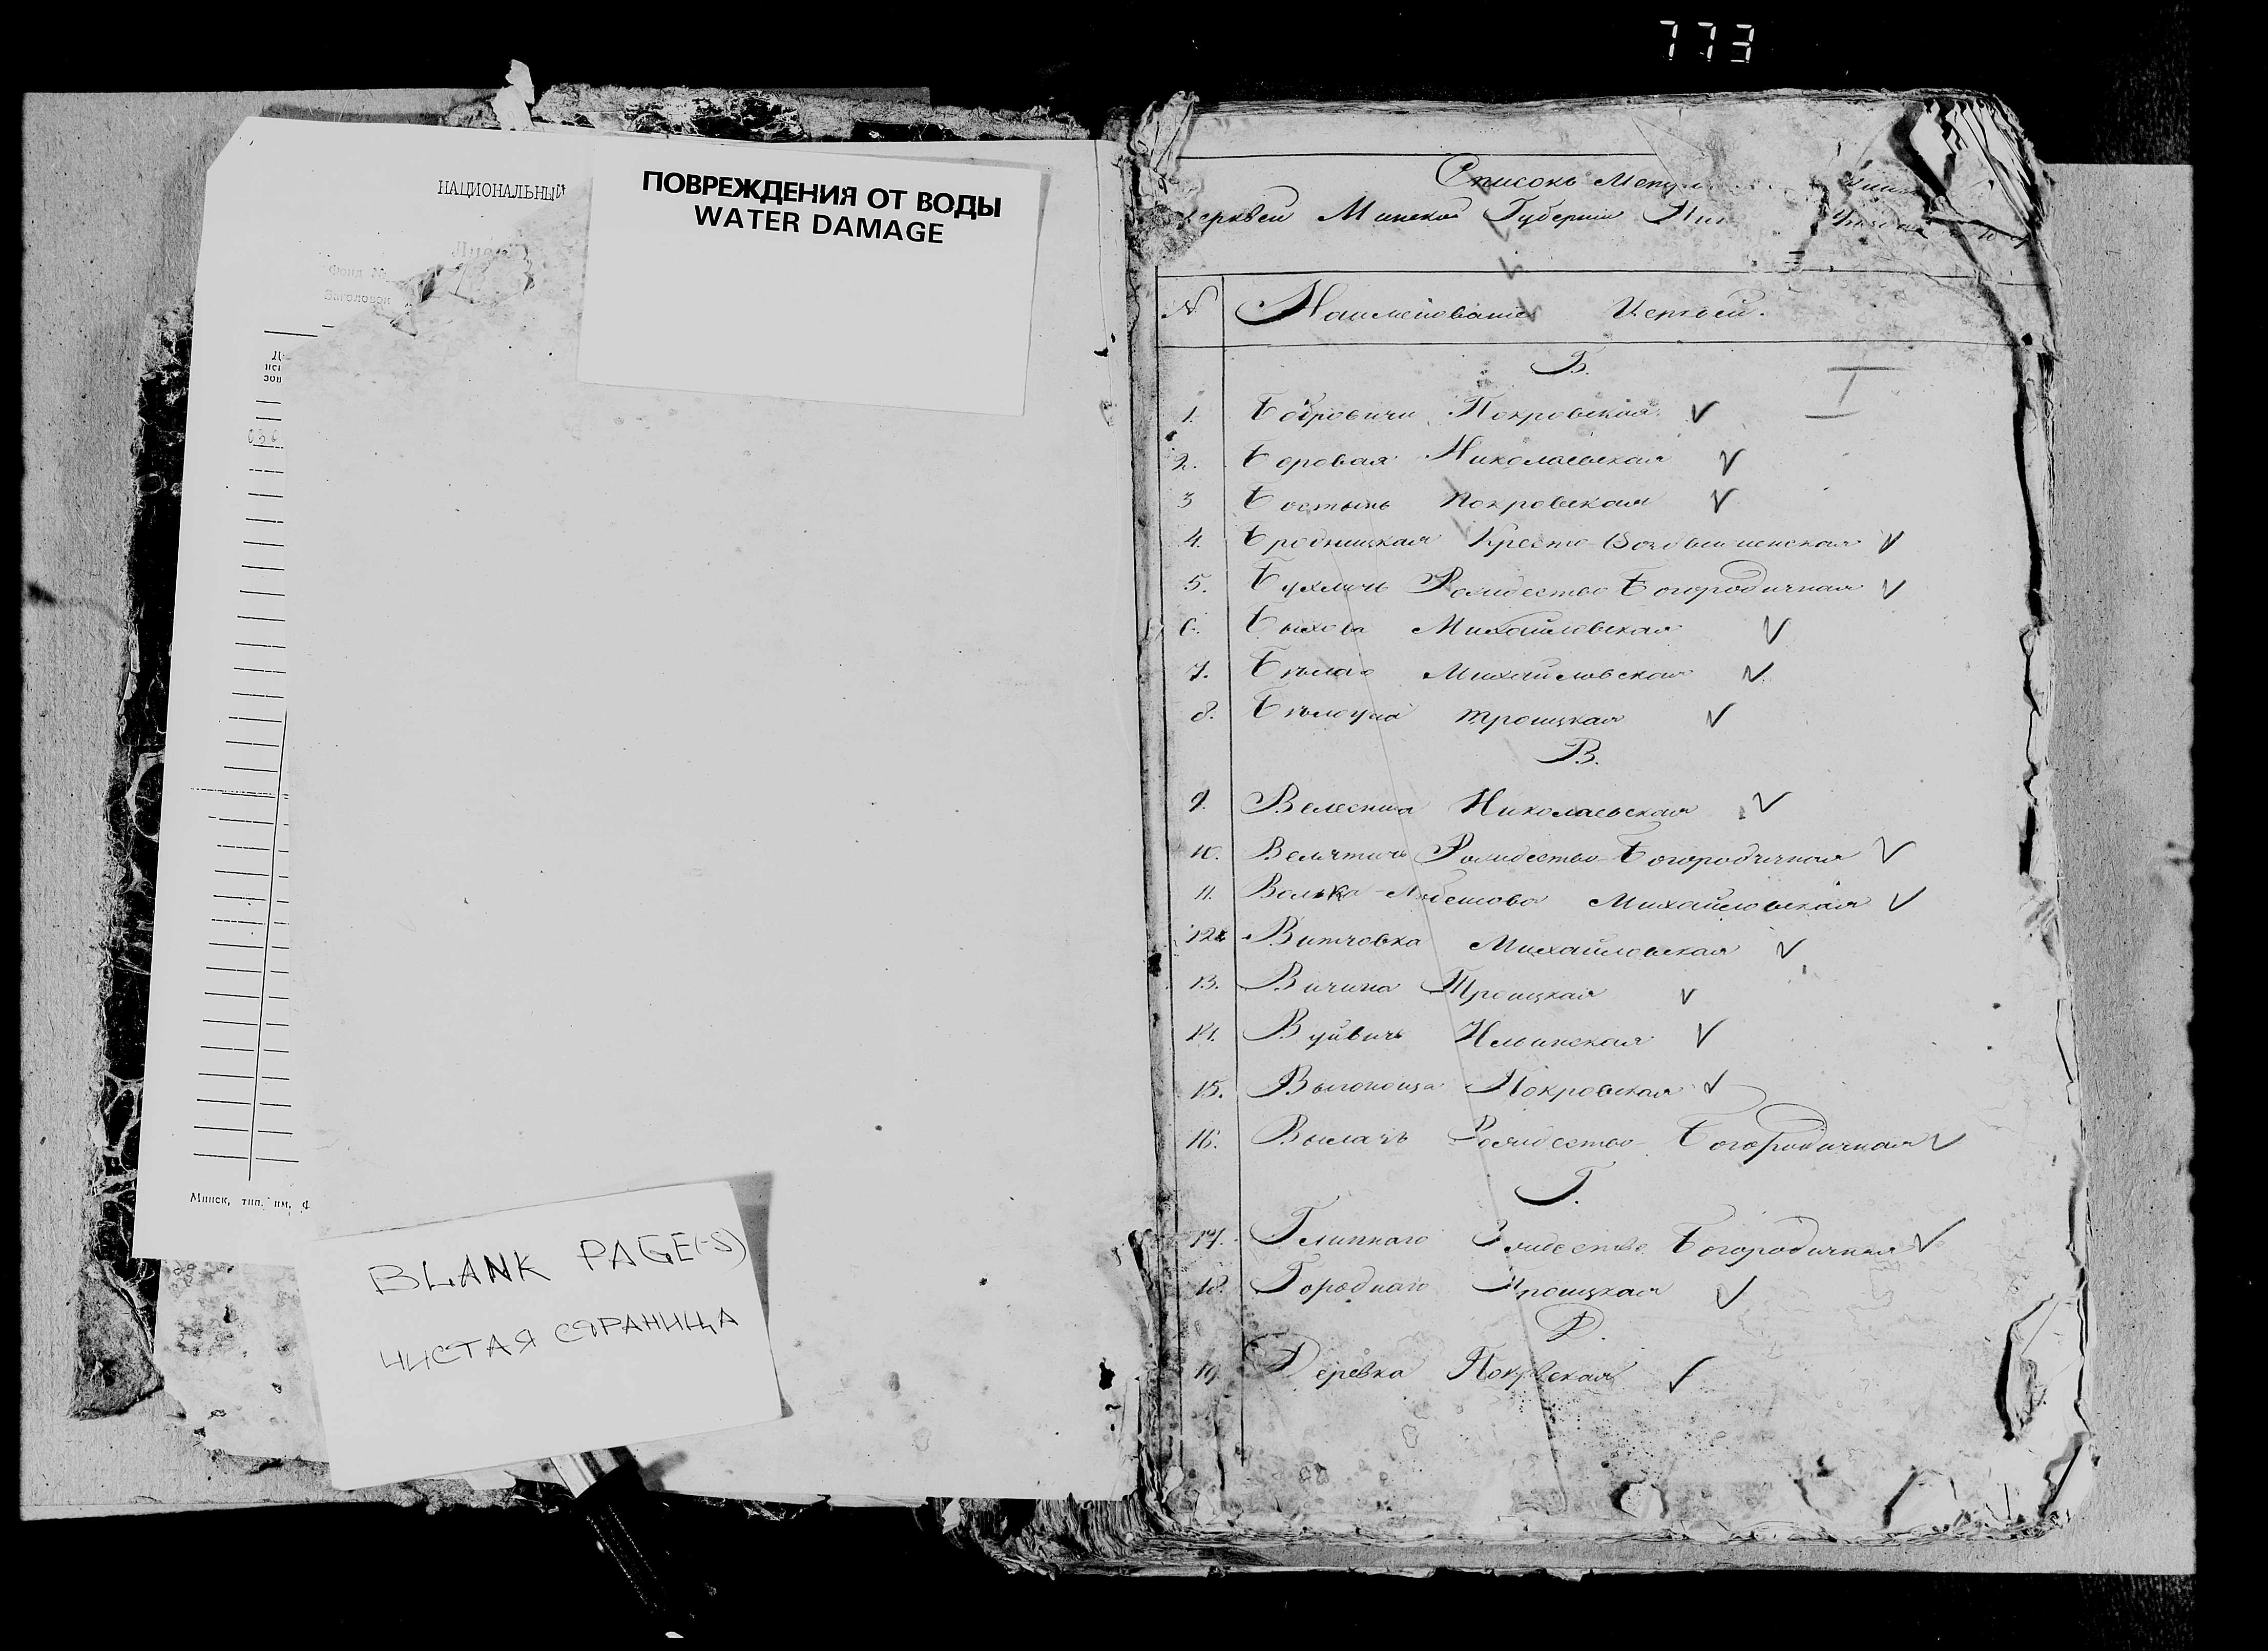 773
НАЦИОНАЛЬНЫЙ
ПОВРЕЖДЕНИЯ ОТ ВОДЫ
WATER DAMAGE
Фонд №
Заголовок
Минск, тип. им. Ф
BLANK PAGE(-S)
ЧИСТАЯ СТРАНИЦА
Списокъ
Церквей Минской Губернии
№ Наименование Церквей.
Б.
1. Бобровичи Покровская ✓
2. Боровая Николаевская ✓
3 Бостынь Покровская ✓
4. Бродницкая Кресто-Воздвиженская ✓
5. Бухличи Рождество Богородичная ✓
6. Быхова Михайловская ✓
7. Бѣлая Михайловская ✓
8. Бѣлоуша Троицкая ✓
В.
9. Велесница Николаевская ✓
10. Велятичи Рождество-Богородичная ✓
11. Волька-Любешова Михайловская ✓
12. Витчовка Михайловская ✓
13. Вичина Троицкая ✓
14. Вуйвичи Ильинская ✓
15. Выгонощи Покровская ✓
16. Вылазъ Рождество-Богородичная ✓
Г.
17. Глиннаго Рождество Богородичная ✓
18. Городнаго Троицкая ✓
Д.
19 Деревка Покровская ✓